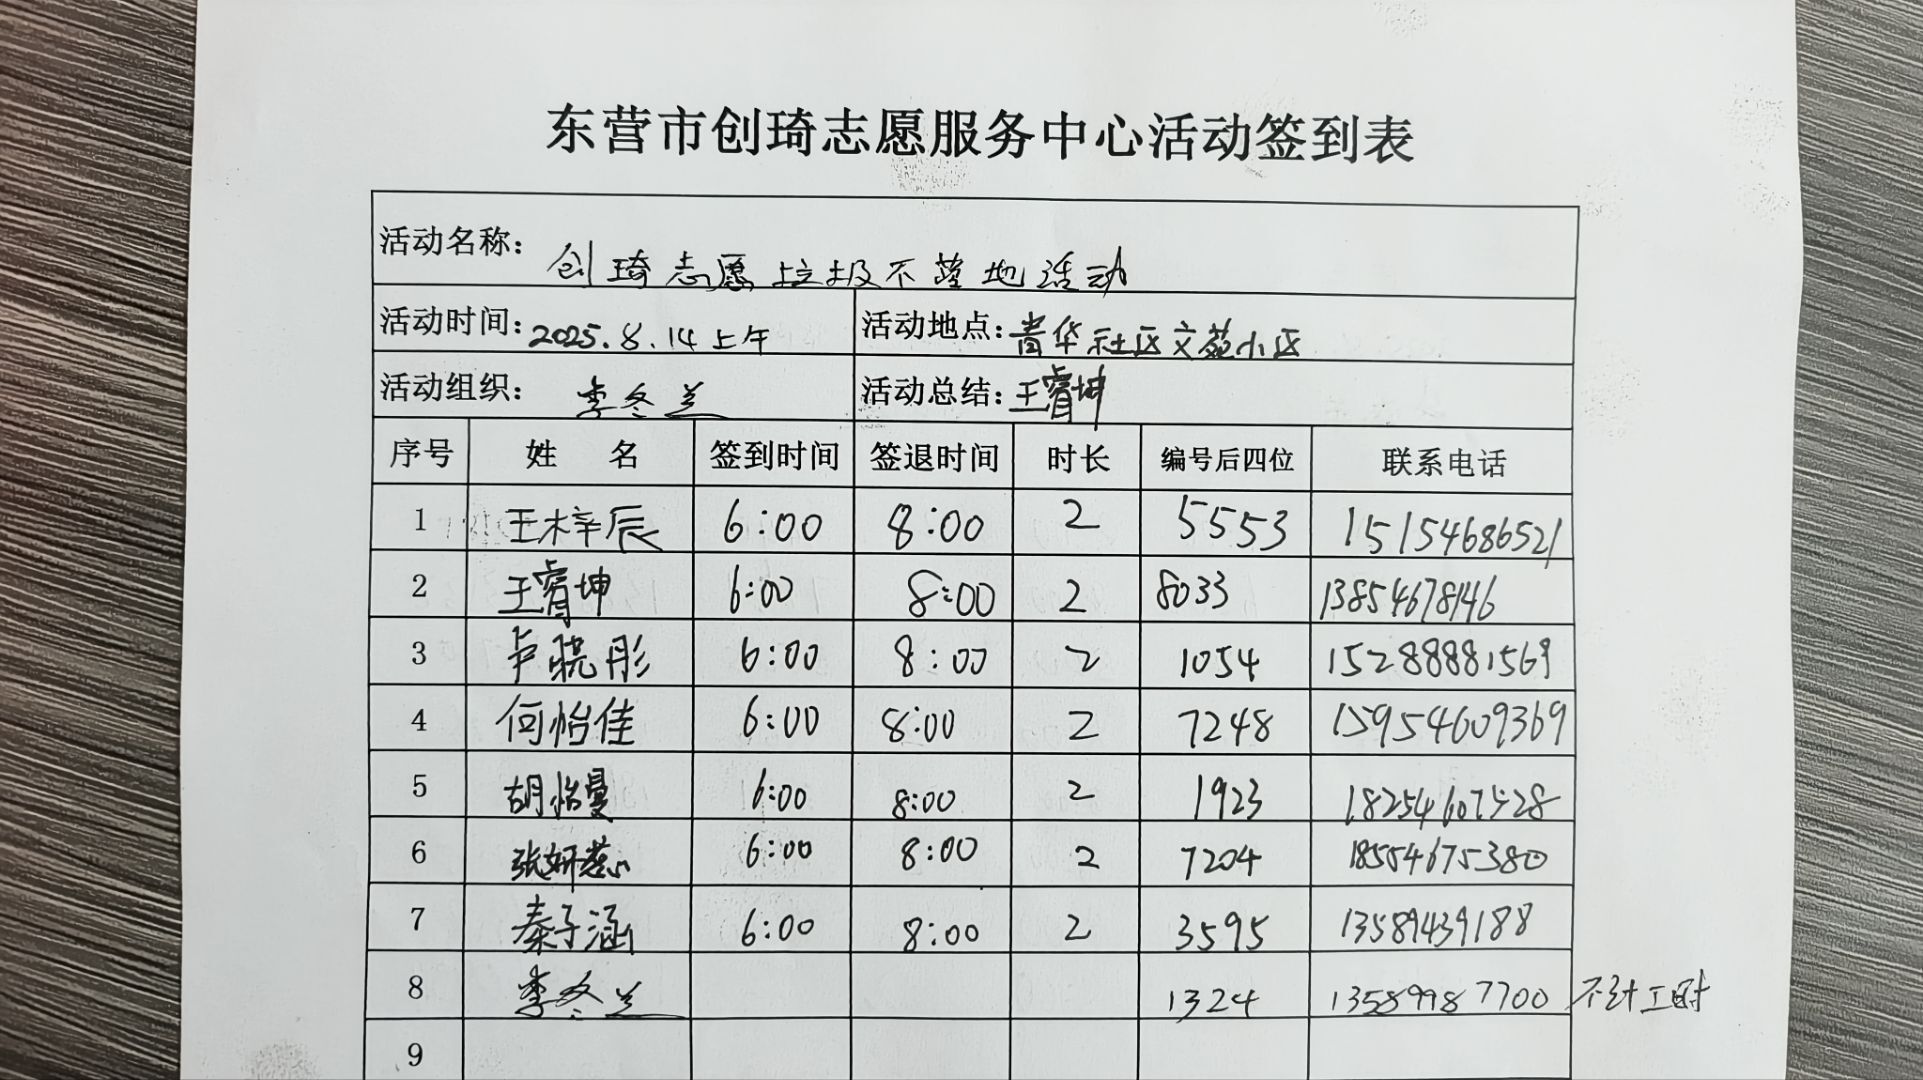 东营市创琦志愿服务中心活动签到表
活动名称: 创琦志愿垃圾不落地活动
活动时间: 2025.8.14上午 活动地点: 青华社区文苑小区
活动组织: 李冬兰 活动总结: 王睿坤
序号 姓名 签到时间 签退时间 时长 编号后四位 联系电话
1 王梓辰 6:00 8:00 2 5553 15154686521
2 王睿坤 6:00 8:00 2 8033 13854678146
3 卢晓彤 6:00 8:00 2 1054 15288881569
4 何怡佳 6:00 8:00 2 7248 15954609369
5 胡怡曼 6:00 8:00 2 1923 18254607528
6 张妍 6:00 8:00 2 7204 18554675380
7 秦子涵 6:00 8:00 2 3595 13589439188
8 李冬兰 1324 13589987700 不计工时
9